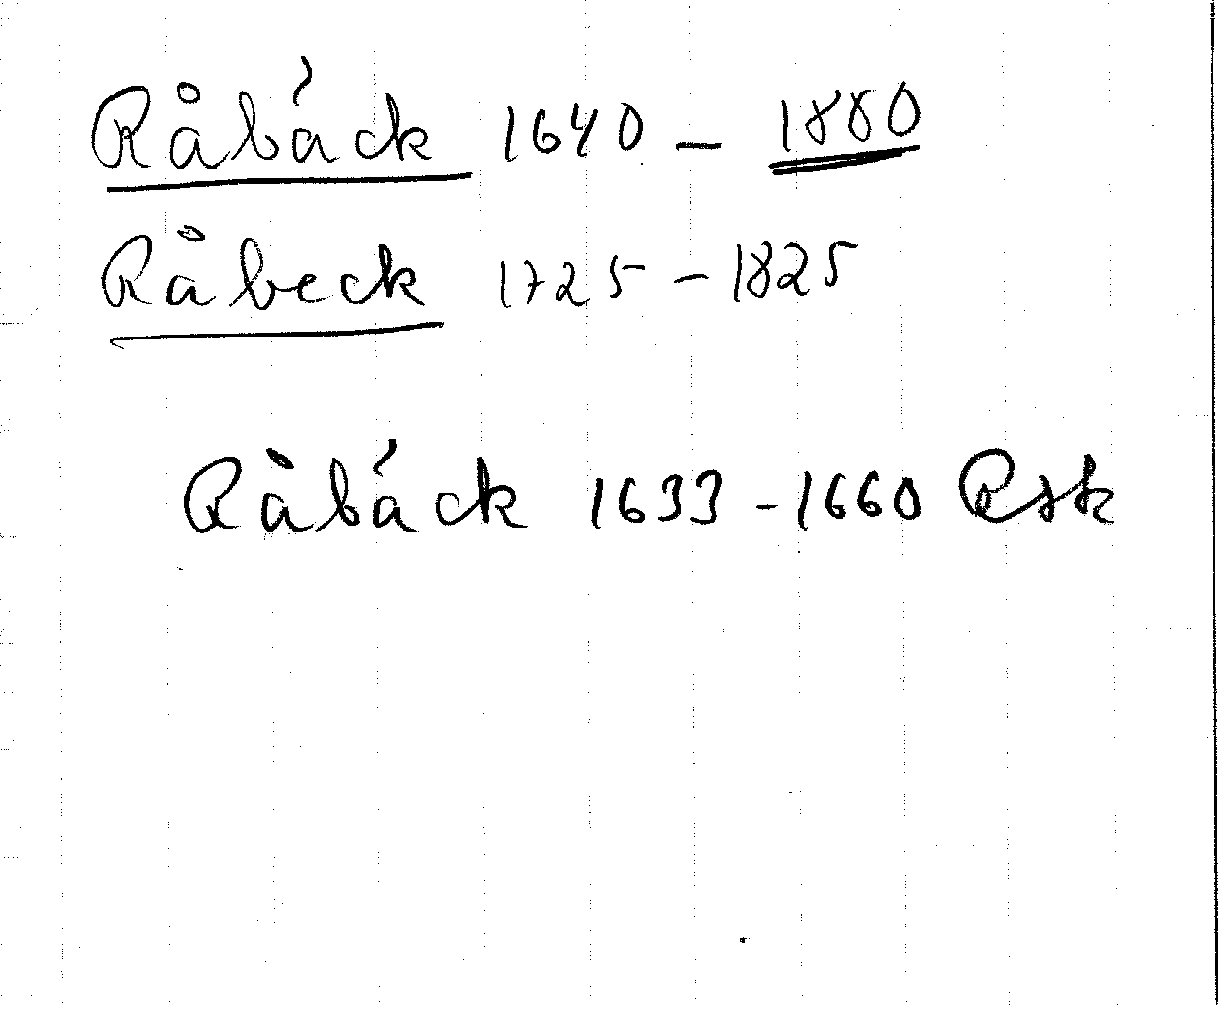 Råbäck 1640 - 1880
Råbeck 1725 - 1825
Råbäck 1633 - 1660 Rsk